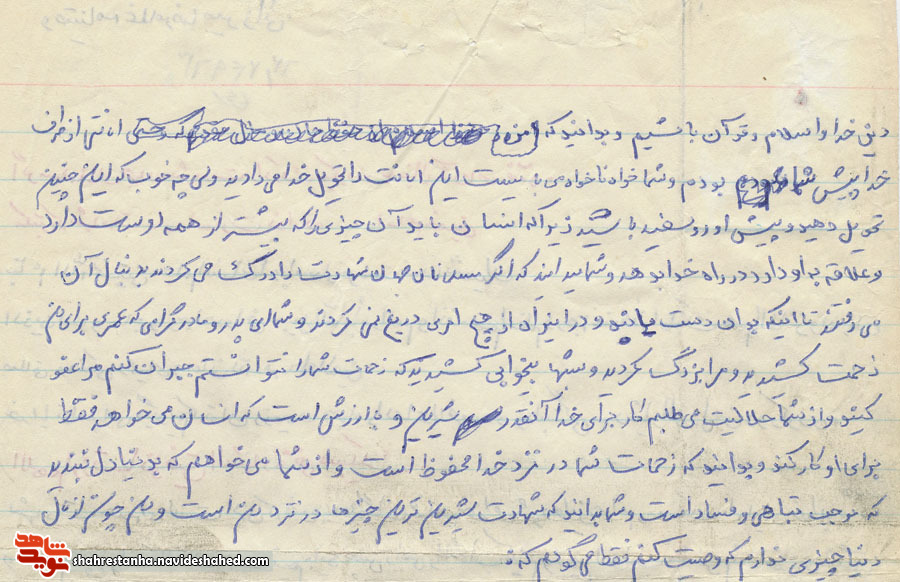 دین خدا و اسلام و قرآن باشیم و بدانید که من که امانتها از طرف
خدا پیش شما بودم و شما خواه ناخواه می بایست این امانت را تحویل خدا می دادید ولی چه خوب که این چنین
تحویل دهید و پیش او روسفید باشید زیرا که انسان باید آن چیزی را که بیشتر از همه دوست دارد
و علاقه به او دارد در راه خدا بدهد و شما بدانید که اگر مسلمانان جهان شهادت را درک می کردند بدنبال آن
می رفتند تا اینکه بدان دست یابند و در این راه از هیچ امری دریغ نمی کردند و شما ای پدر و مادر گرامی که عمری برای من
زحمت کشیدید و مرا بزرگ کردید و شبها بیخوابی کشیدید که زحمات شما را نتوانستم جبران کنم مرا عفو
کنید و از شما حلالیت می طلبم کار برای خدا آنقدر شیرین و با ارزش است که انسان می خواهد فقط
برای او کار کند و بدانید که زحمات شما در نزد خدا محفوظ است و از شما می خواهم که بدنیا دل نبندید
که موجب تباهی و فساد است و شما بدانید که شهادت شیرین ترین چیزها در نزد من است و من چون از مال
دنیا چیزی ندارم که وصیت کنم فقط می گویم که :
نوید شاهد
shahrestanha.navideshahed.com